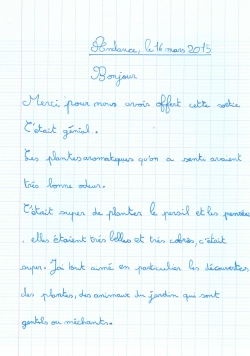 Andance, le 16 mars 2015
Bonjour
Merci pour nous avoir offert cette sortie
C'était génial.
Les plantes aromatiques qu'on a senti avaient
très bonne odeur.
C'était super de planter le persil et les pensées
, elles étaient très belles et très colorés, c'était
super. J'ai tout aimé en particulier les découvertes
des plantes, des animaux du jardin qui sont
gentils ou méchants.